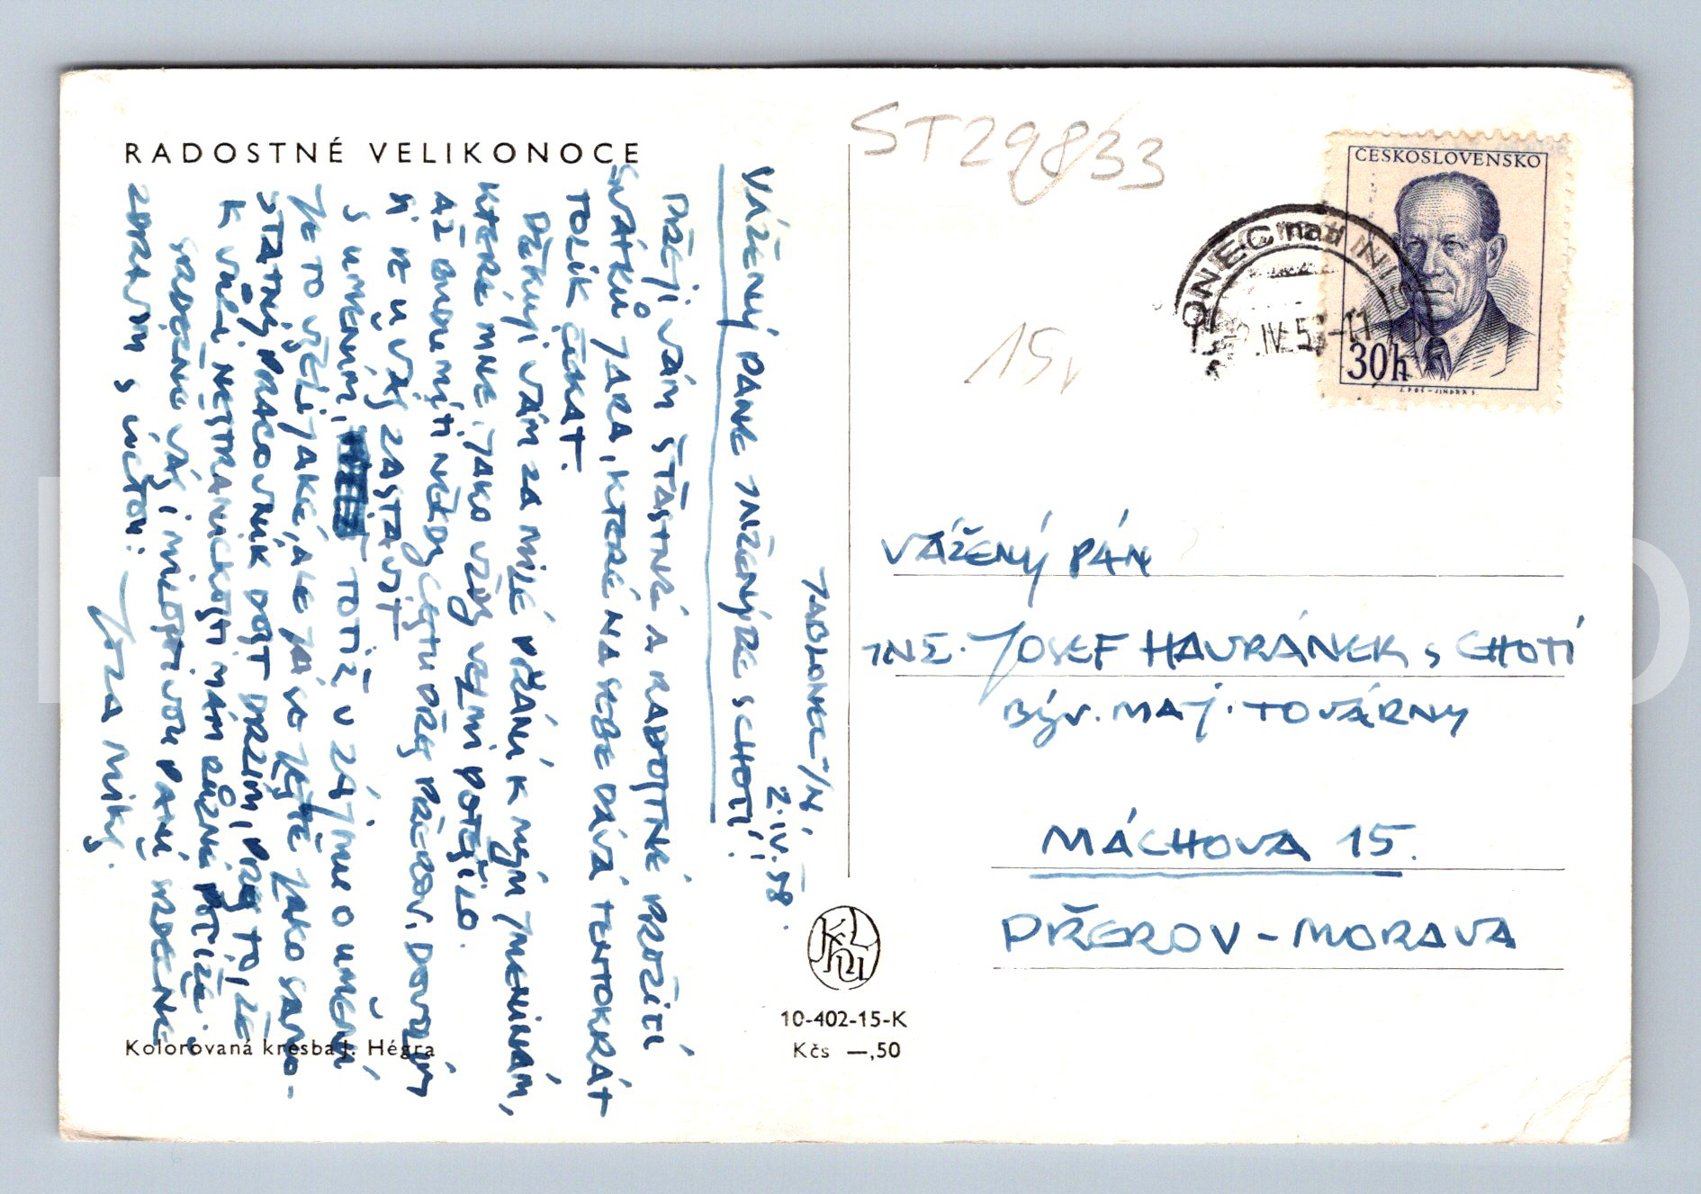 RADOSTNÉ VELIKONOCE
JABLONEC /N,
2.IV.58.
VÁŽENÝ PANE INŽENÝRE S CHOTÍ!
PŘEJI VÁM ŠŤASTNÉ A RADOSTNÉ PROŽITÍ
SVÁTKŮ JARA, KTERÉ NA SEBE DÁVÁ TENTOKRÁT
TOLIK ČEKAT.
DĚKUJI VÁM ZA MILÉ PŘÁNÍ K MÝM JMENINÁM,
KTERÉ MNE JAKO VŽDY VELMI POTĚŠILO.
AŽ BUDU MÍTI NĚKDY CESTU PŘES PŘEROV, DOVOLÍM
SI SE U VÁS ZASTAVIT
S UMĚNÍM, TOTIŽ V ZÁJMU O UMĚNÍ
JE TO VŠELIJAKÉ, ALE JÁ SE JEŠTĚ JAKO SAMO-
STATNÝ PRACOVNÍK DOST DRŽÍM, PŘES TO, ŽE
K VŮLI NESTRANICKOSTI MÁM RŮZNÉ POTÍŽE.
SRDEČNĚ VÁS I MILOSTIVOU PANÍ SRDEČNĚ
ZDRAVÍM S ÚCTOU:
JOŽA MIKY.
Kolorovaná kresba J. Hégra
10-402-15-K
Kčs —,50
ST29833
15,
ČESKOSLOVENSKO
30h
ONEC nad NI
IV.5
VÁŽENÝ PÁN
INŽ. JOSEF HAVRÁNEK S CHOTÍ
BÝV. MAJ. TOVÁRNY
MÁCHOVA 15.
PŘEROV - MORAVA